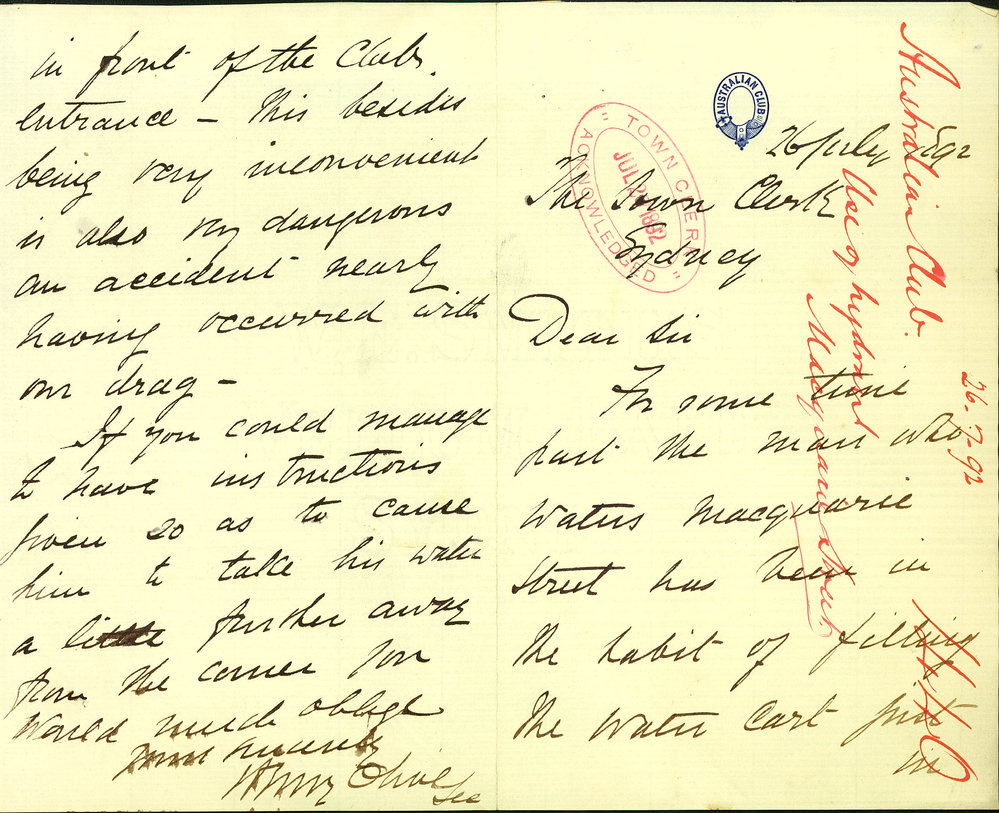 AUSTRALIAN CLUB
26 July 1892
The Town Clerk
Sydney
Dear Sir
For some time
past the man who
waters Macquarie
Street has been in
the habit of filling
the water cart just
in
in front of the Clubs
entrance – This besides
being very inconvenient
is also very dangerous
an accident nearly
having occurred with
our drag –
If you could manage
to have instructions
given so as to cause
him to take his water
a little further away
from the corner you
would much oblige
Yours sincerely
Henry
Sec
TOWN CLERK
JUL 1892
ACKNOWLEDGED
Australian Club.
Use of hydrant
Macquarie Street
26.7.92